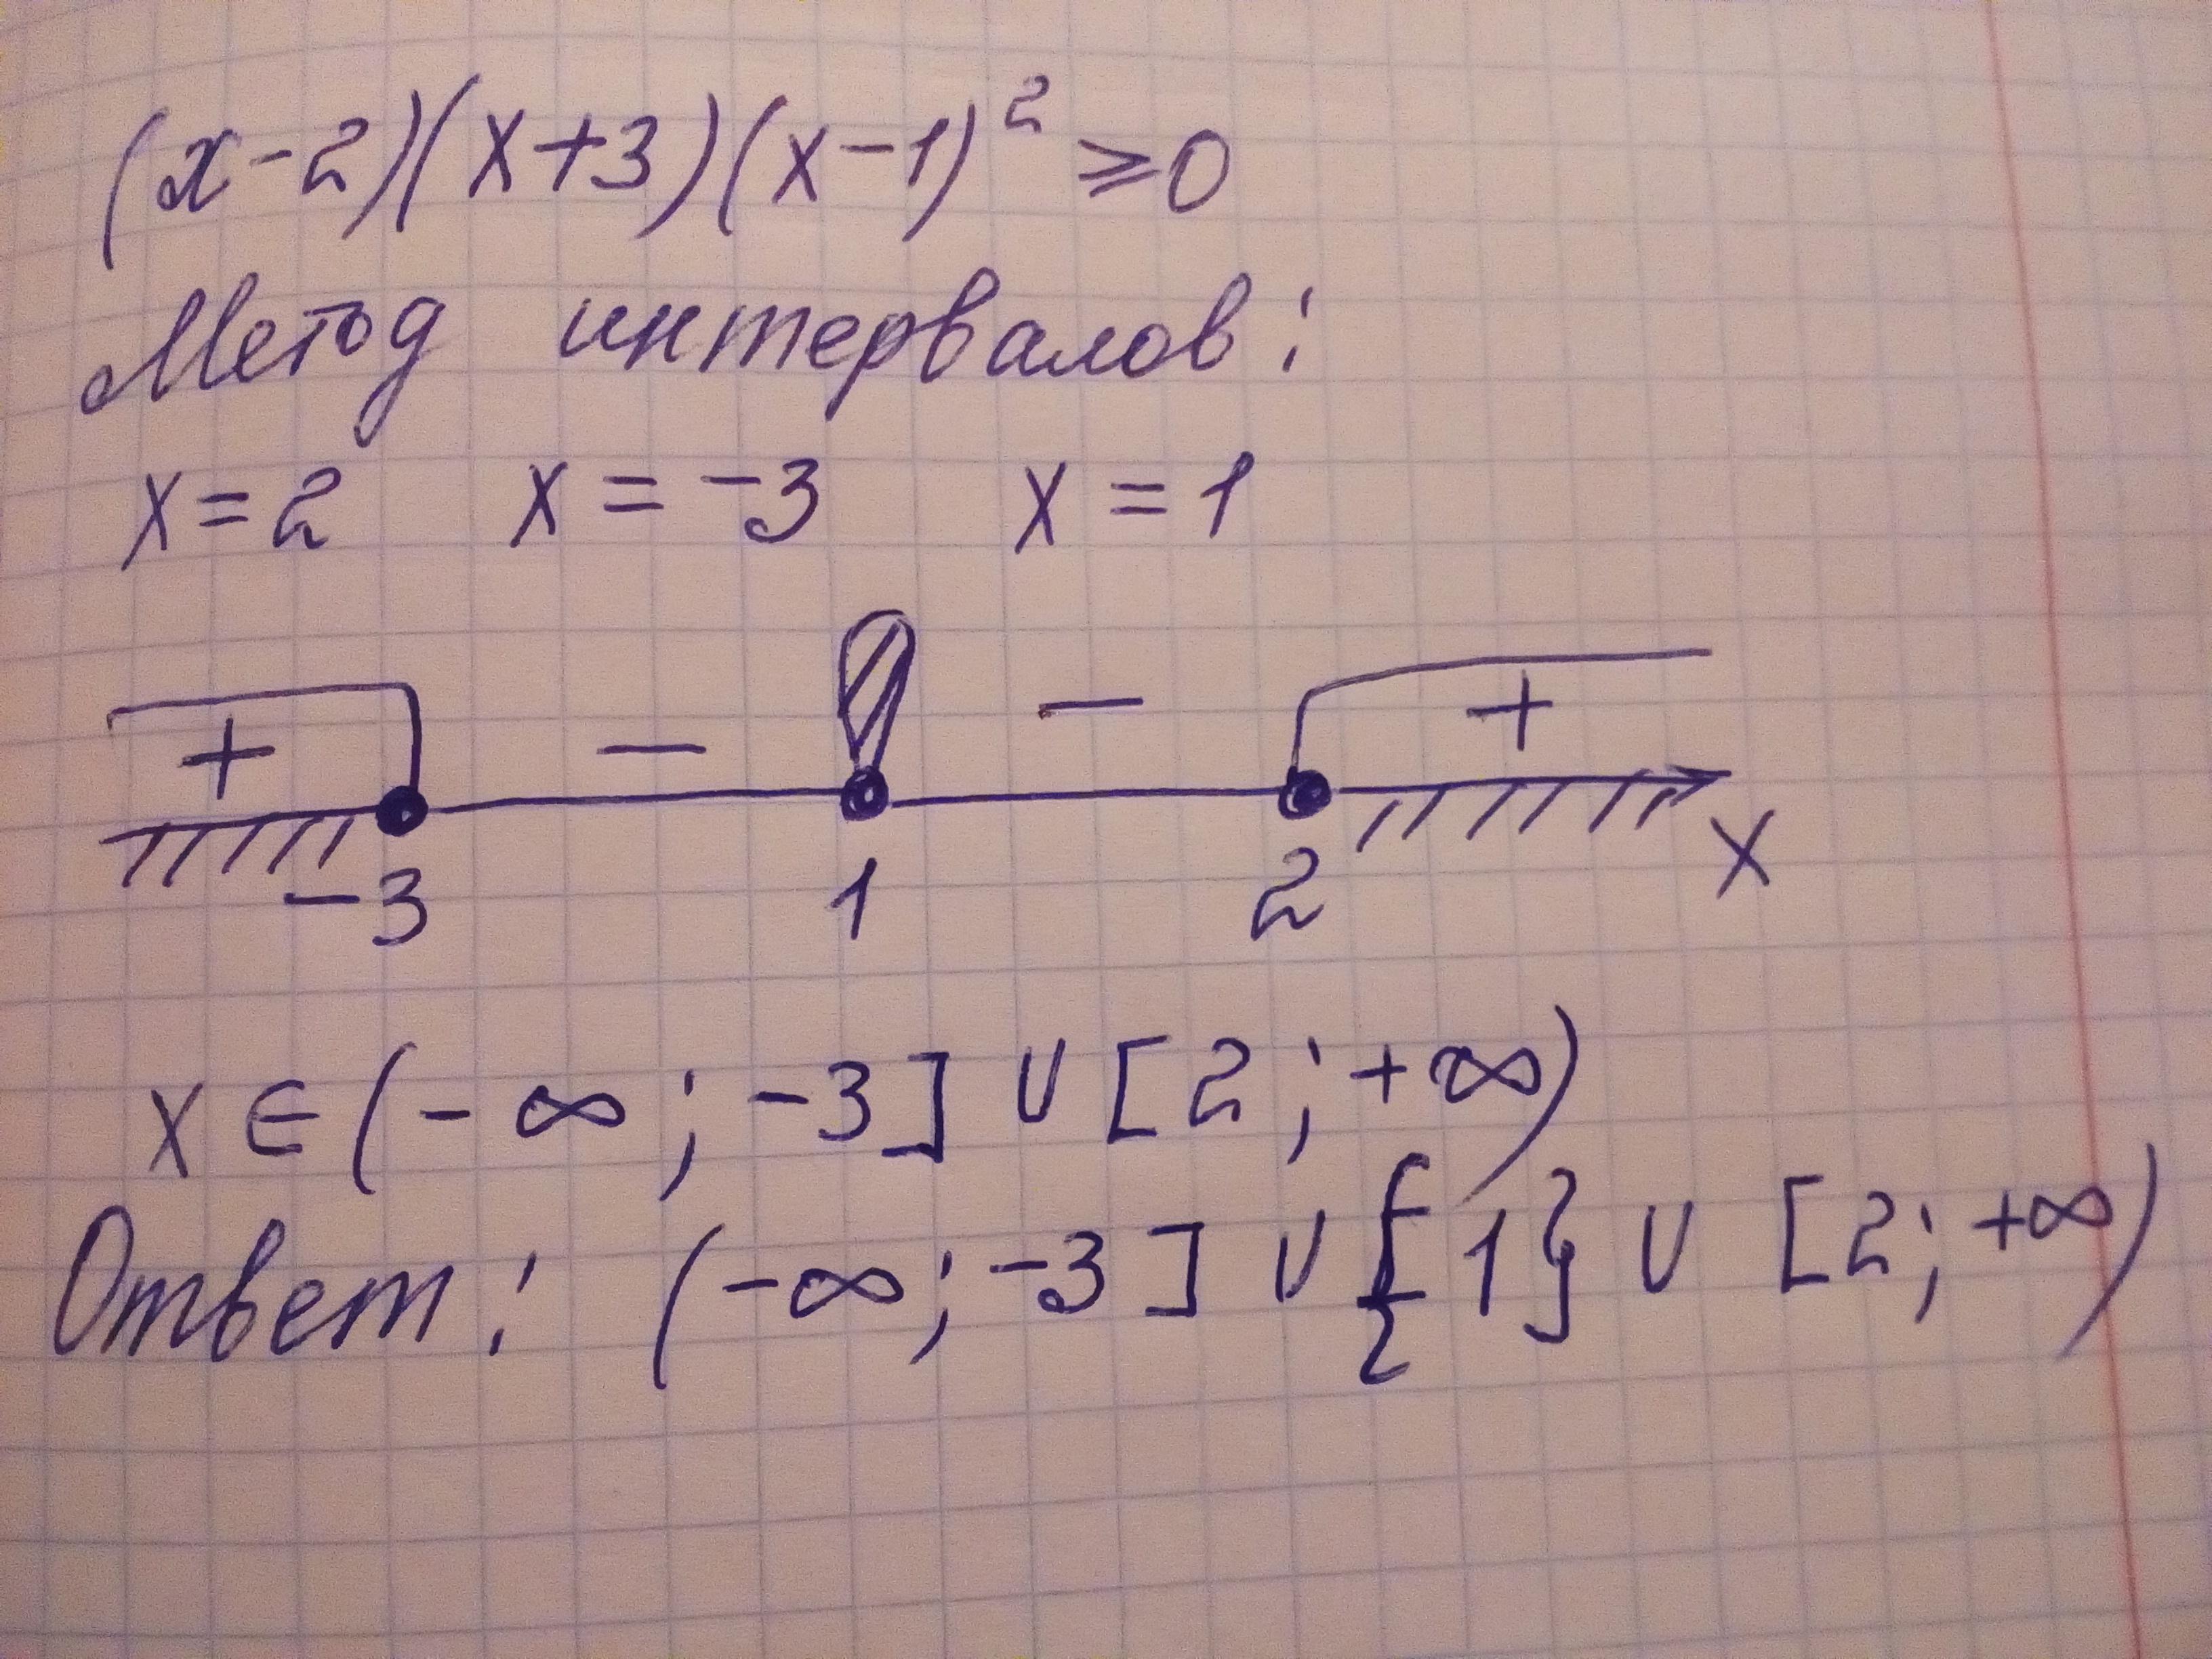 (x-2)(x+3)(x-1)² ⩾0
Метод интервалов:
x=2 x=-3 x=1
+ - - +
-3 1 2 x
x∈(-∞;-3]∪[2;+∞)
Ответ: (-∞;-3]∪{1}∪[2;+∞)